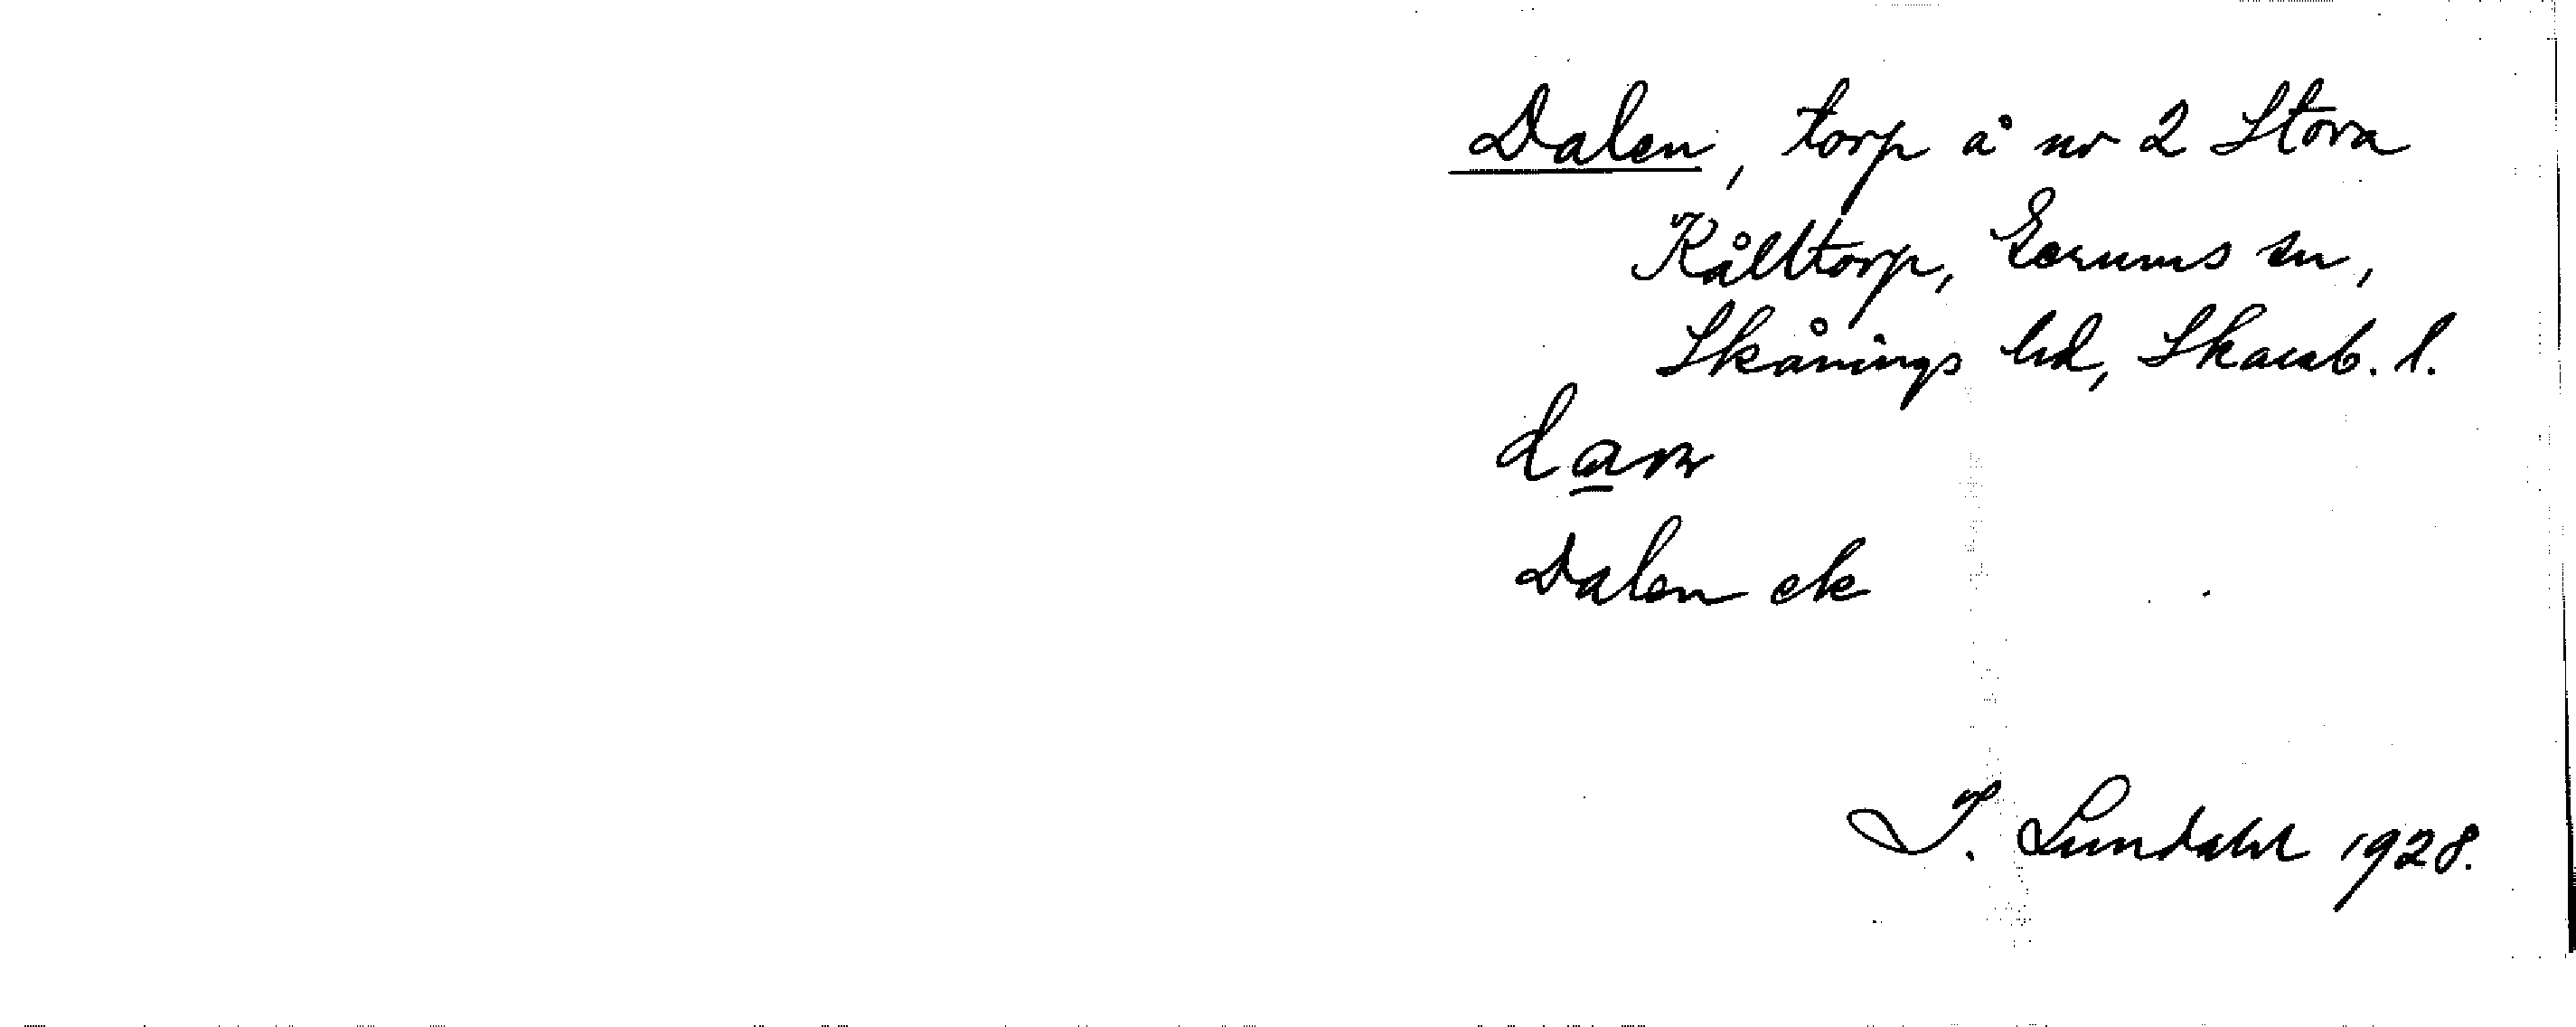 Dalen, torp å nr 2 Stora
Kålltorp, Eorums sn,
Skånings hd, Skarab. l.
Dalen ek
I. Lundahl 1928.